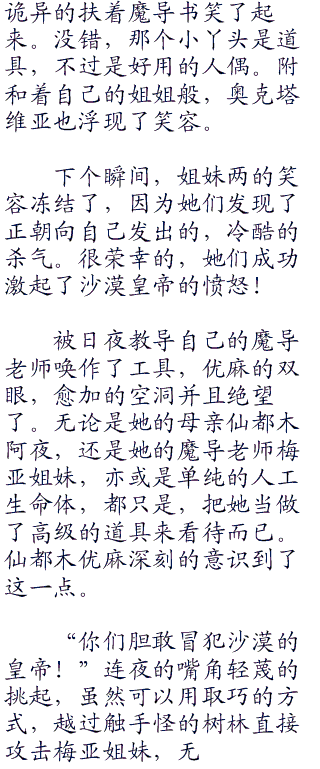 诡异的扶着魔导书笑了起
来。没错，那个小丫头是道
具，不过是好用的人偶。附
和着自己的姐姐般，奥克塔
维亚也浮现了笑容。
下个瞬间，姐妹两的笑
容冻结了，因为她们发现了
正朝向自己发出的，冷酷的
杀气。很荣幸的，她们成功
激起了沙漠皇帝的愤怒！
被日夜教导自己的魔导
老师唤作了工具，优麻的双
眼，愈加的空洞并且绝望
了。无论是她的母亲仙都木
阿夜，还是她的魔导老师梅
亚姐妹，亦或是单纯的人工
生命体，都只是，把她当做
了高级的道具来看待而已。
仙都木优麻深刻的意识到了
这一点。
“你们胆敢冒犯沙漠的
皇帝！”连夜的嘴角轻蔑的
挑起，虽然可以用取巧的方
式，越过触手怪的树林直接
攻击梅亚姐妹，无